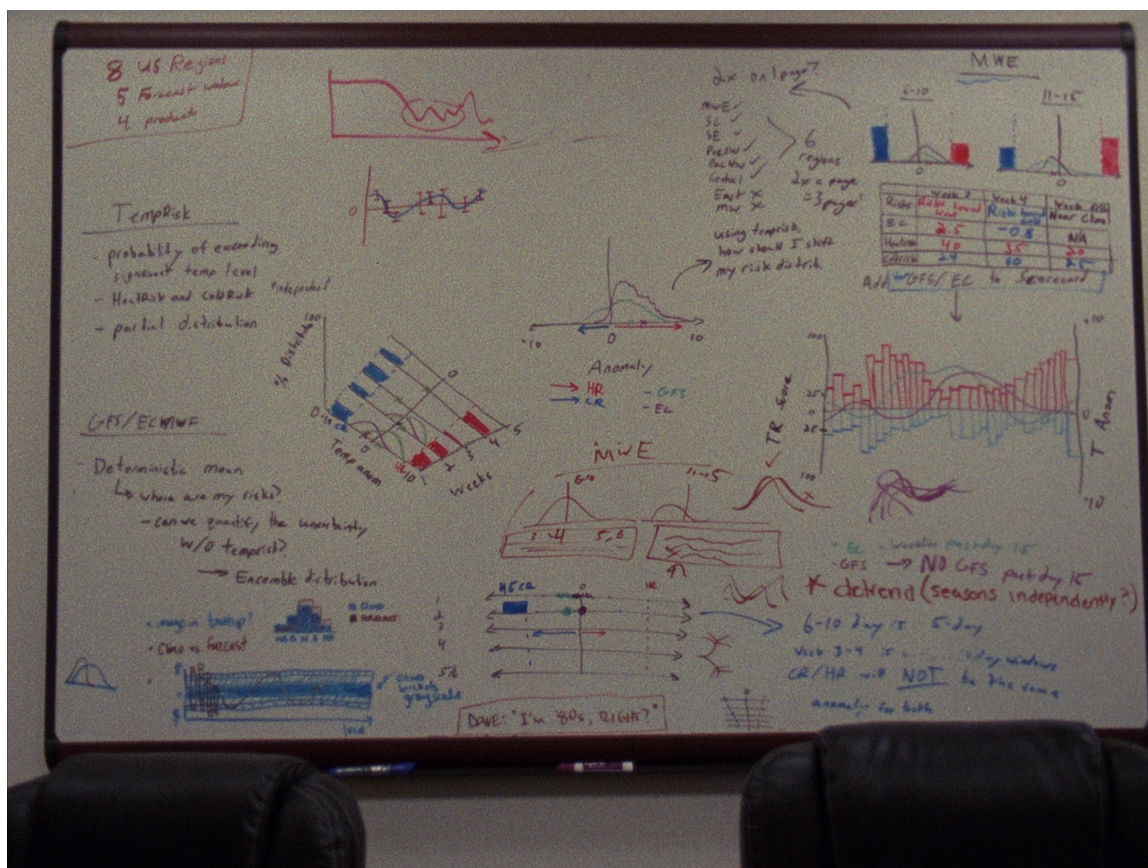 8 US Regions
5 Forecast window
4 products
TempRisk
- probability of exceeding
significant temp level
- HeatRisk and ColdRisk *independent
- partial distribution
GFS/ECMWF
- Deterministic mean
↳ where are my risks?
- can we quantify the uncertainty
w/o temprisk?
→ Ensemble distribution
• Climo vs forecast
0
100
% Distribution
Temp anom
Weeks
0
1
2
3
4
5
-10
0
10
Anomaly
→ HR
→ CR
- GFS
- EC
MWE
6-10
11-15
3-4
5,6
45 CR
0
HR
1
2
3
4
DAVE: "I'm '80s, RIGHT?"
2x on 1 page?
MWE ✓
SC ✓
SE ✓
PacSW ✓
PacNW ✓
Central ✓
East x
MW x
6
regions
2x a page
= 3 pages!
using temprisk,
how should I shift
my risk distrib.
MWE
6-10
11-15
0
0
Risks
Week 4
Near Climo
EC
2.5
-0.8
NA
HeatRisk
40
35
20
ColdRisk
24
30
25
Add GFS/EC to Scorecard
100
25
0
25
100
TR Score
+10
0
-10
T Anom
- EC
past day 15
- GFS → NO GFS past day 15
* detrend (seasons independently?)
6-10 day is 5-day
Week 3-4 is
day windows
CR/HR will NOT be the same
anomaly for both